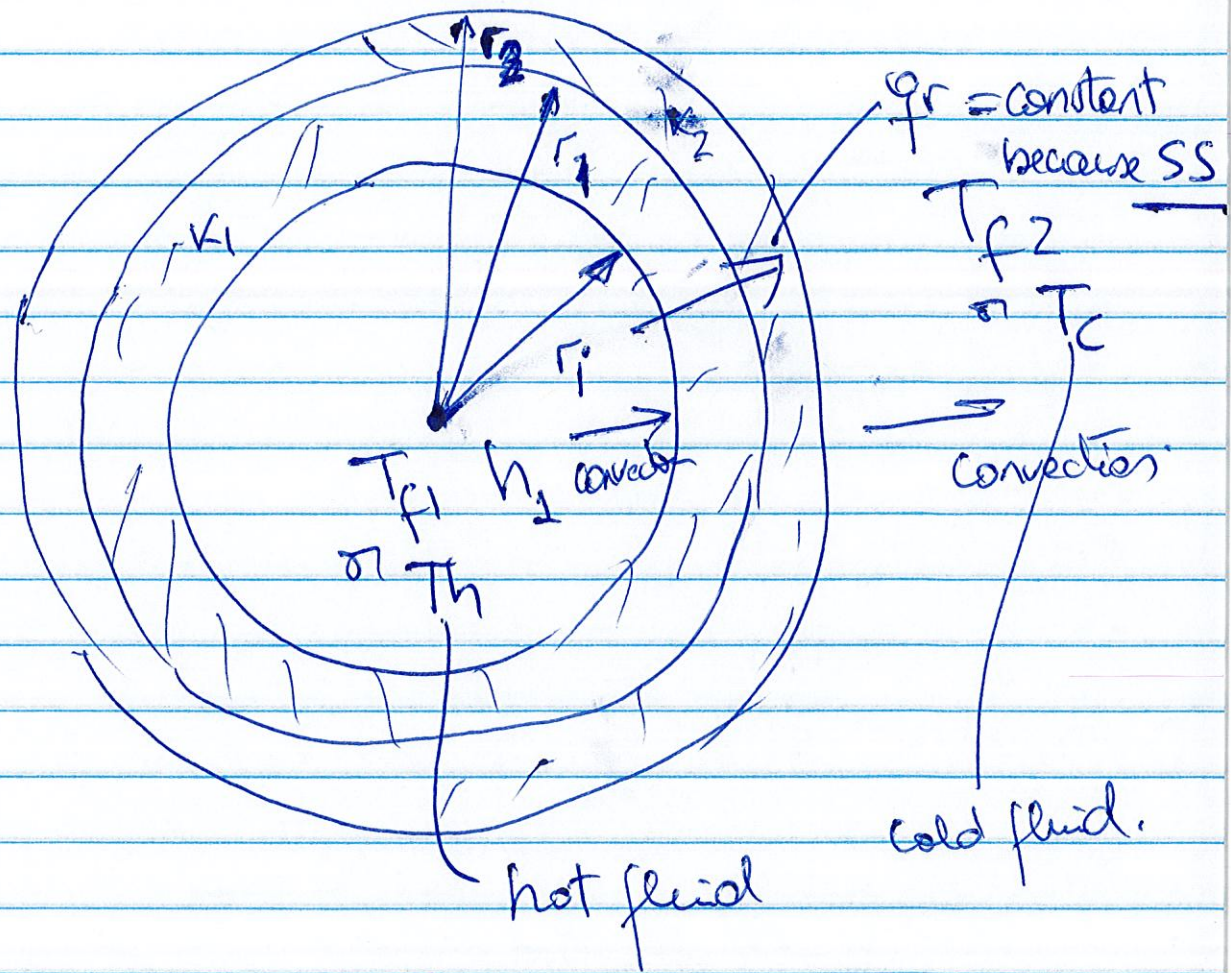 r2
r1
k2
qr = constant
because SS
Tf2
or Tc
k1
ri
Tf1 h1 convection
or Th
Convection
cold fluid.
hot fluid